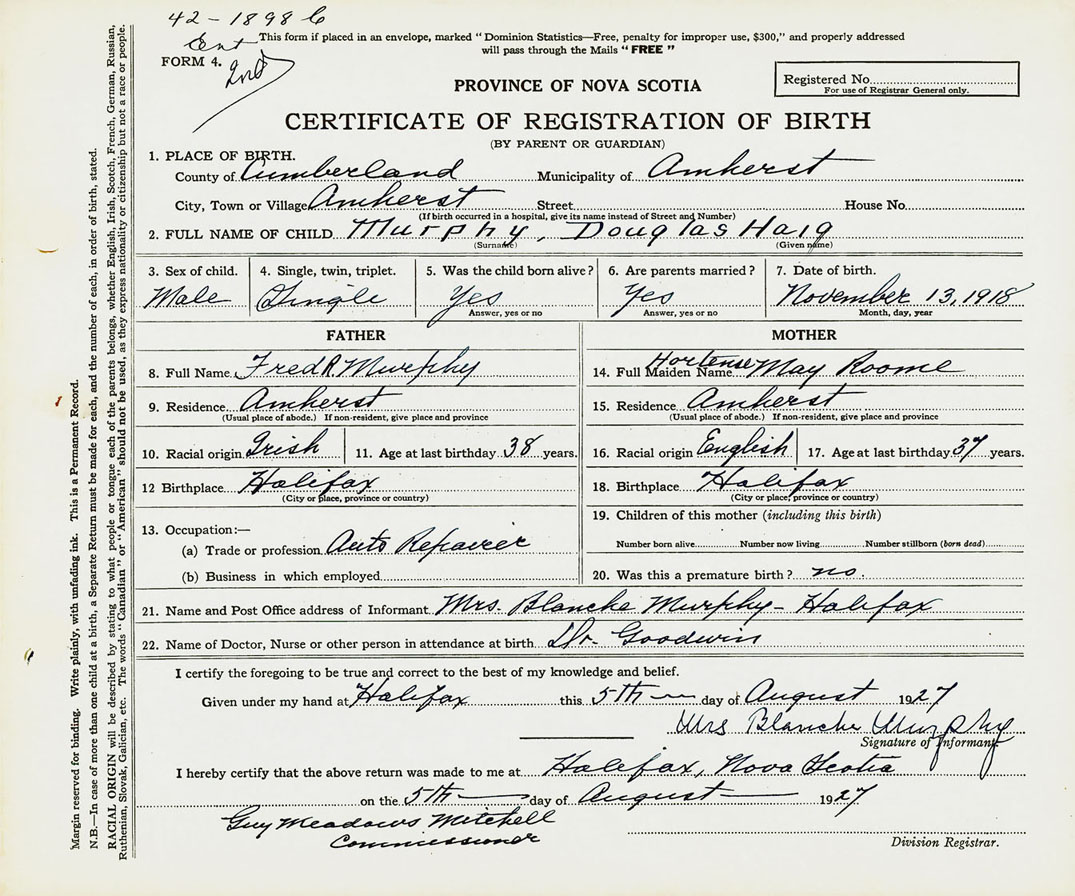 42 - 1898 6
Sent This form if placed in an envelope, marked "Dominion Statistics—Free, penalty for improper use, $300," and properly addressed
will pass through the Mails "FREE"
FORM 4.
2nd
PROVINCE OF NOVA SCOTIA
Registered No.
For use of Registrar General only.
CERTIFICATE OF REGISTRATION OF BIRTH
(BY PARENT OR GUARDIAN)
1. PLACE OF BIRTH.
County of Cumberland Municipality of Amherst
City, Town or Village Amherst Street House No.
(If birth occurred in a hospital, give its name instead of Street and Number)
2. FULL NAME OF CHILD Murphy, Douglas Haig
(Surname) (Given name)
3. Sex of child. 4. Single, twin, triplet. 5. Was the child born alive? 6. Are parents married? 7. Date of birth.
Male Single Yes Yes November 13, 1918
Answer, yes or no Answer, yes or no Month, day, year
FATHER MOTHER
8. Full Name Fred R Murphy 14. Full Maiden Name Hortense May Roome
9. Residence Amherst 15. Residence Amherst
(Usual place of abode.) If non-resident, give place and province (Usual place of abode.) If non-resident, give place and province
10. Racial origin Irish 11. Age at last birthday 38 years. 16. Racial origin English 17. Age at last birthday 37 years.
12 Birthplace Halifax 18. Birthplace Halifax
(City or place, province or country) (City or place, province or country)
13. Occupation:— 19. Children of this mother (including this birth)
(a) Trade or profession Auto Repairer Number born alive Number now living Number stillborn (born dead)
(b) Business in which employed 20. Was this a premature birth? no.
21. Name and Post Office address of Informant Mrs. Blanche Murphy - Halifax
22. Name of Doctor, Nurse or other person in attendance at birth Dr. Goodwin
I certify the foregoing to be true and correct to the best of my knowledge and belief.
Given under my hand at Halifax this 5th day of August 1927
Mrs Blanche Murphy
Signature of Informant.
I hereby certify that the above return was made to me at Halifax, Nova Scotia
on the 5th day of August 1927
Guy Meadows Mitchell
Commissioner
Division Registrar.
Margin reserved for binding. Write plainly, with unfading ink. This is a Permanent Record.
N.B.—In case of more than one child at a birth, a Separate Return must be made for each, and the number of each, in order of birth, stated.
RACIAL ORIGIN will be described by stating to what people or tongue each of the parents belongs, whether English, Irish, Scotch, French, German, Russian,
Ruthenian, Slovak, Galician, etc. The words "Canadian" or "American" should not be used, as they express nationality or citizenship but not a race or people.